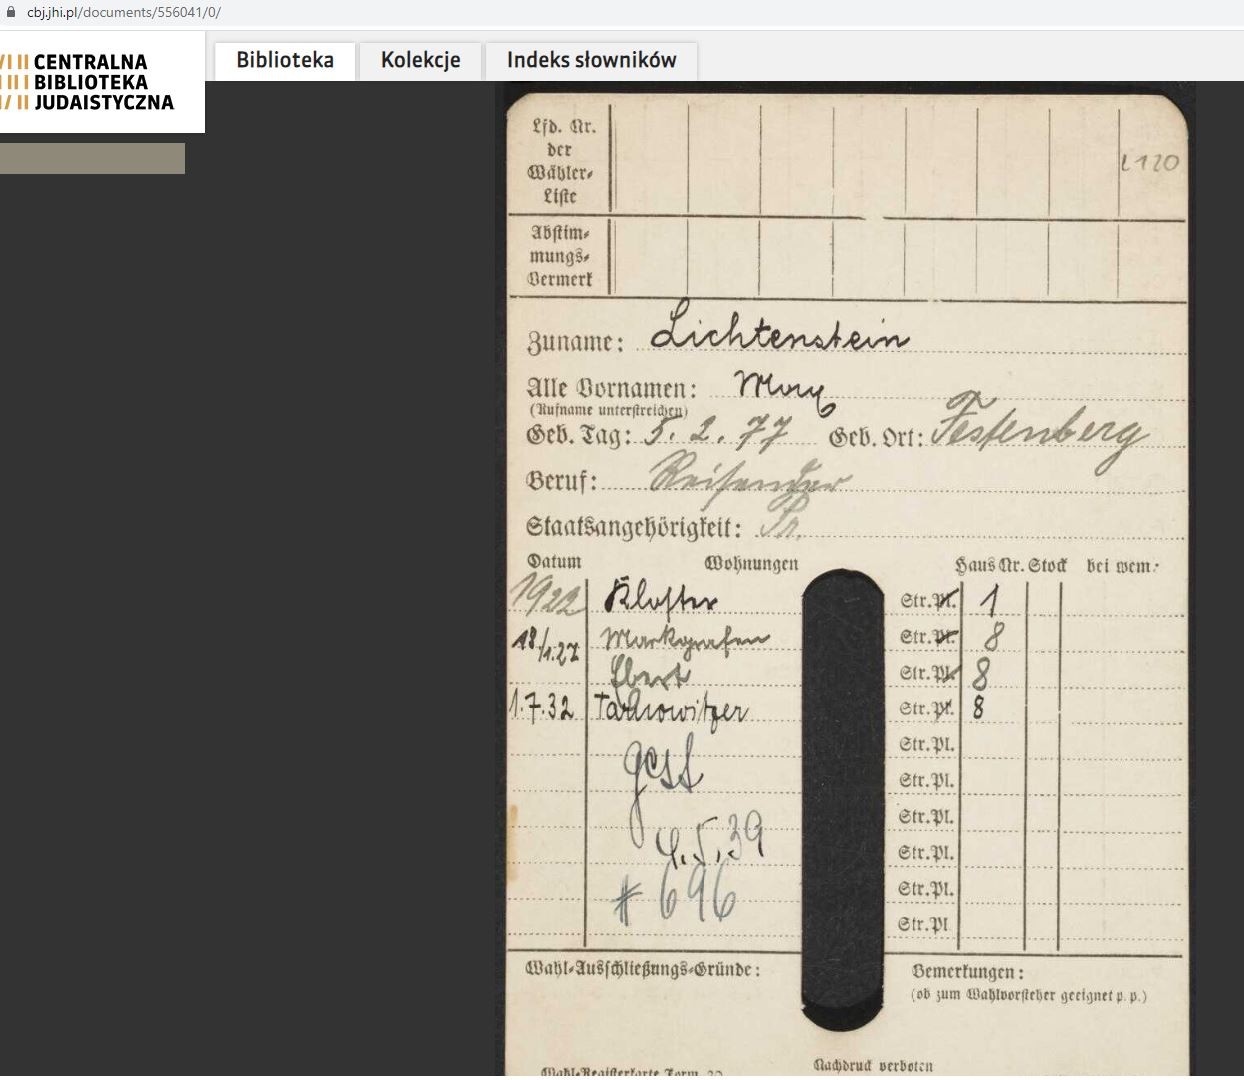 cbj.jhi.pl/documents/556041/0/
CENTRALNA
BIBLIOTEKA
JUDAISTYCZNA
Biblioteka Kolekcje Indeks słowników
Lfd. Nr.
der
Wähler-
Liste
L120
Abstim-
mungs-
Vermerk
Zuname: Lichtenstein
Alle Vornamen: Max
(Rufname unterstreichen)
Geb. Tag: 5. 2. 77 Geb. Ort: Festenberg
Beruf: Reisender
Staatsangehörigkeit: Pr.
Datum Wohnungen Haus Nr. Stock bei wem:
1922 Kloster Str.Pl. 1
18/1.27 Markgrafen Str.Pl. 8
Ebert Str.Pl. 8
1.7.32 Tarnowitzer Str.Pl. 8
Str.Pl.
gest Str.Pl.
Str.Pl.
4.5.39 Str.Pl.
# 696 Str.Pl.
Str.Pl
Wahl-Ausschließungs-Gründe: Bemerkungen:
(ob zum Wahlvorsteher geeignet p. p.)
Nachdruck verboten
Wahl-Registerkarte Form